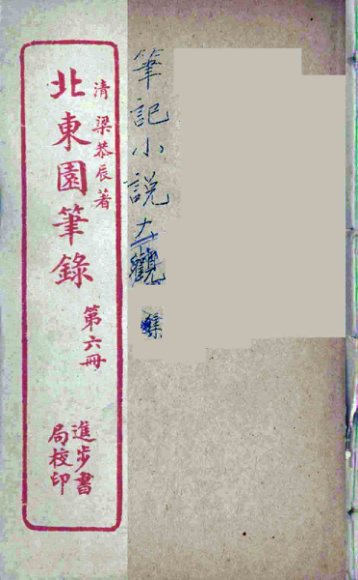 筆記小説大觀
清 梁恭辰著
北東園筆錄
第六冊
進步書
局校印